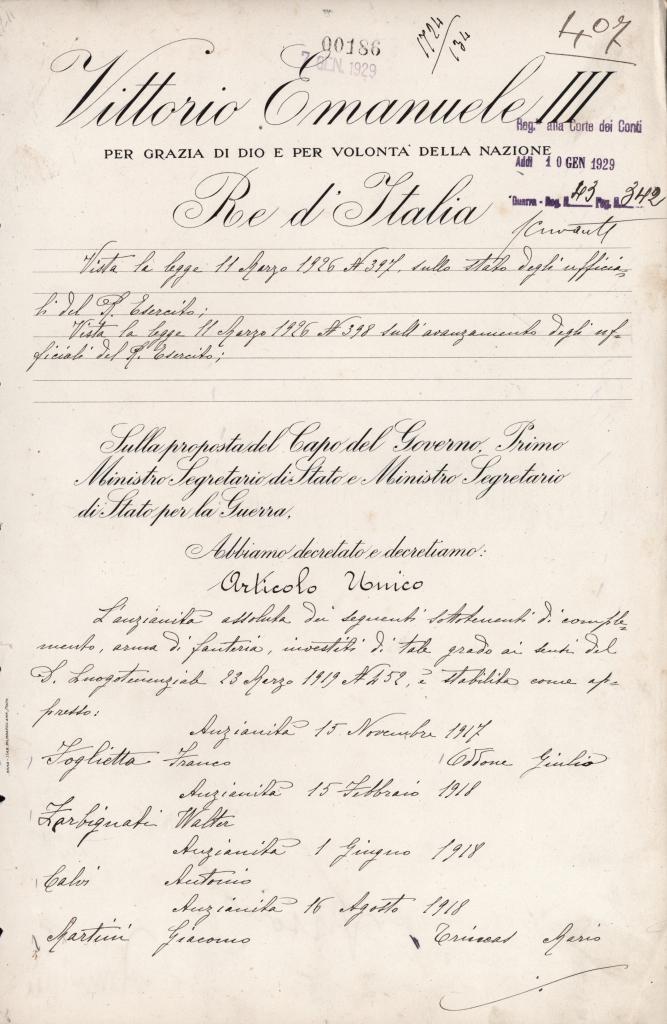 00186
7 GEN. 1929
1724/134
407
Vittorio Emanuele III
Reg. alla Corte dei Conti
PER GRAZIA DI DIO E PER VOLONTA' DELLA NAZIONE
Addì 10 GEN 1929
Re d'Italia
Guerra - Reg. N. 43 Pag. N. 342
Vista la legge 11 Marzo 1926 N 397, sullo stato degli ufficia-
li del R. Esercito;
Vista la legge 11 Marzo 1926 N 398 sull'avanzamento degli uf-
ficiali del R. Esercito;
Sulla proposta del Capo del Governo, Primo
Ministro Segretario di Stato e Ministro Segretario
di Stato per la Guerra,
Abbiamo decretato e decretiamo:
Articolo Unico
L'anzianità assoluta dei seguenti sottotenenti di comple-
mento, arma di fanteria, investiti di tale grado ai sensi del
D. Luogotenenziale 23 Marzo 1919 N 452, è stabilita come ap-
presso:
Anzianità 15 Novembre 1917
Foglietta Franco Oddone Giulio
Anzianità 15 Febbraio 1918
Zerbignati Walter
Anzianità 1 Giugno 1918
Calvi Antonio
Anzianità 16 Agosto 1918
Martini Giacomo Trincas Mario